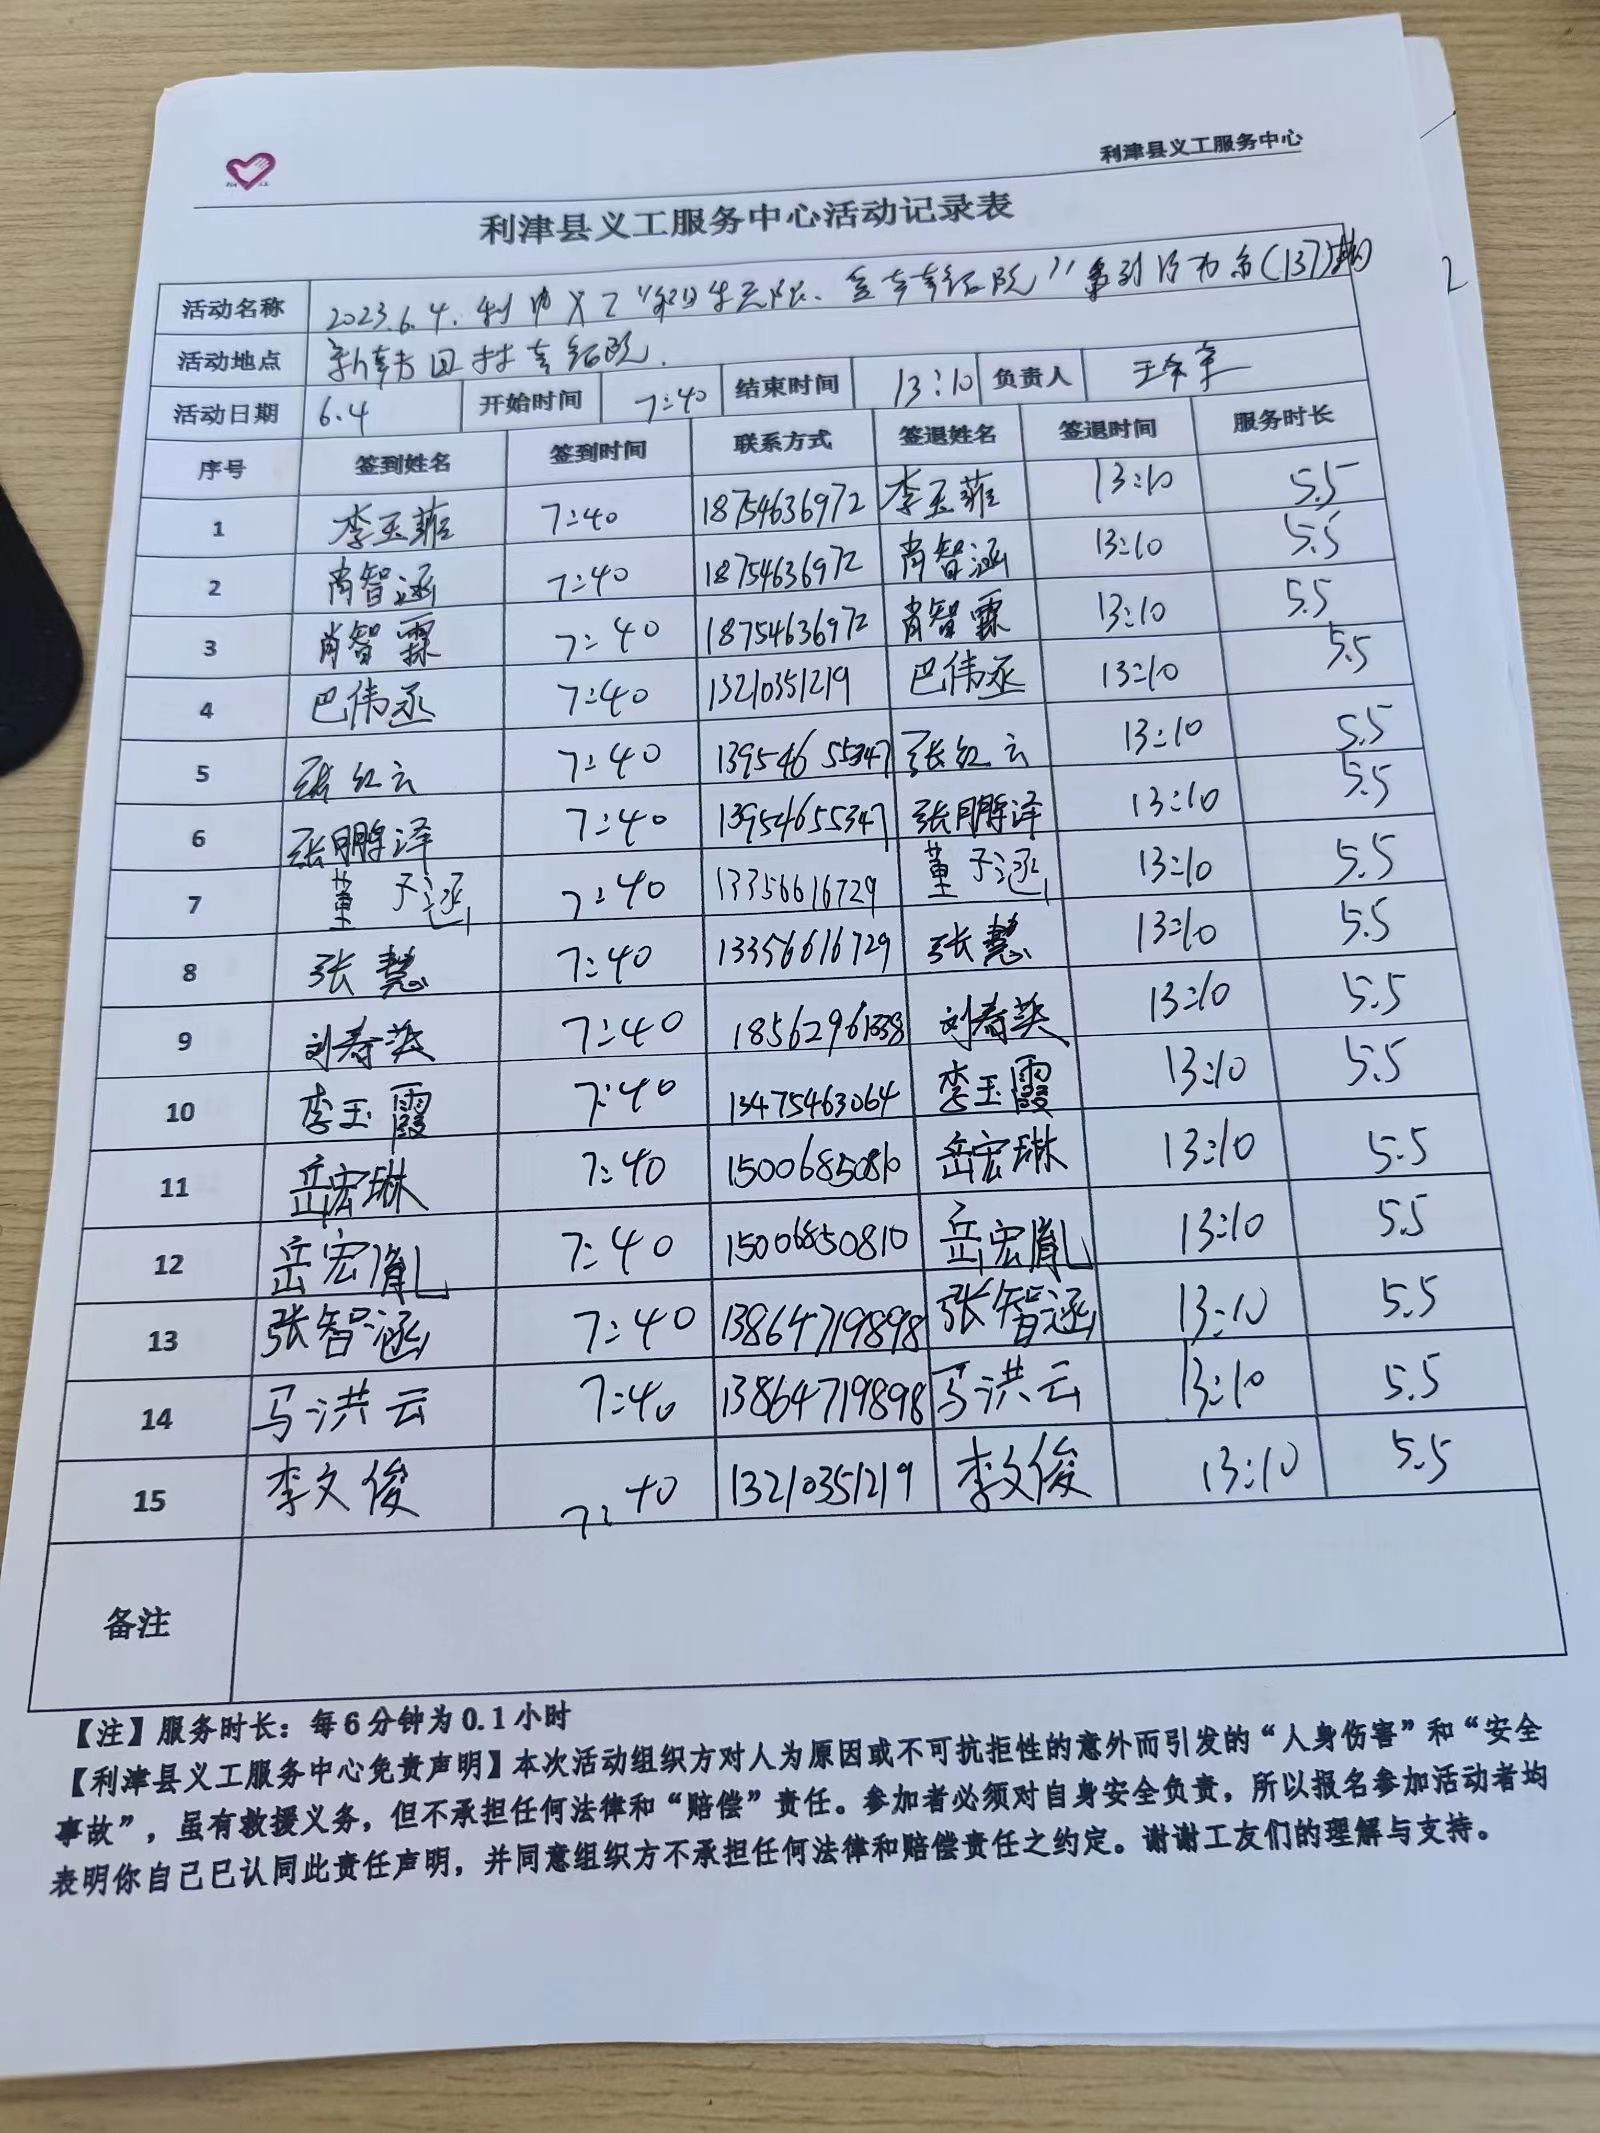 利津县义工服务中心
利津县义工服务中心活动记录表
活动名称 2023.6.4. (137)期
2
活动地点 新韩田村
活动日期 6.4 开始时间 7:40 结束时间 13:10 负责人
序号 签到姓名 签到时间 联系方式 签退姓名 签退时间 服务时长
1 李玉菲 7:40 18754636972 李玉菲 13:10 5.5
2 肖智涵 7:40 18754636972 肖智涵 13:10 5.5
3 肖智霖 7:40 18754636972 肖智霖 13:10 5.5
4 巴伟丞 7:40 13210351219 巴伟丞 13:10 5.5
5 张红云 7:40 13954655347 张红云 13:10 5.5
6 张鹏泽 7:40 13954655347 张鹏泽 13:10 5.5
7 董子涵 7:40 13356616729 董子涵 13:10 5.5
8 张慧 7:40 13356616729 张慧 13:10 5.5
9 刘春英 7:40 刘春英 13:10 5.5
10 李玉霞 7:40 13475463064 李玉霞 13:10 5.5
11 岳宏琳 7:40 15006850810 岳宏琳 13:10 5.5
12 岳宏胤 7:40 15006850810 岳宏胤 13:10 5.5
13 张智涵 7:40 13864719898 张智涵 13:10 5.5
14 马洪云 7:40 13864719898 马洪云 13:10 5.5
15 李文俊 7:40 13210351219 李文俊 13:10 5.5
备注
【注】服务时长：每6分钟为0.1小时
【利津县义工服务中心免责声明】本次活动组织方对人为原因或不可抗拒性的意外而引发的“人身伤害”和“安全
事故”，虽有救援义务，但不承担任何法律和“赔偿”责任。参加者必须对自身安全负责，所以报名参加活动者均
表明你自己已认同此责任声明，并同意组织方不承担任何法律和赔偿责任之约定。谢谢工友们的理解与支持。